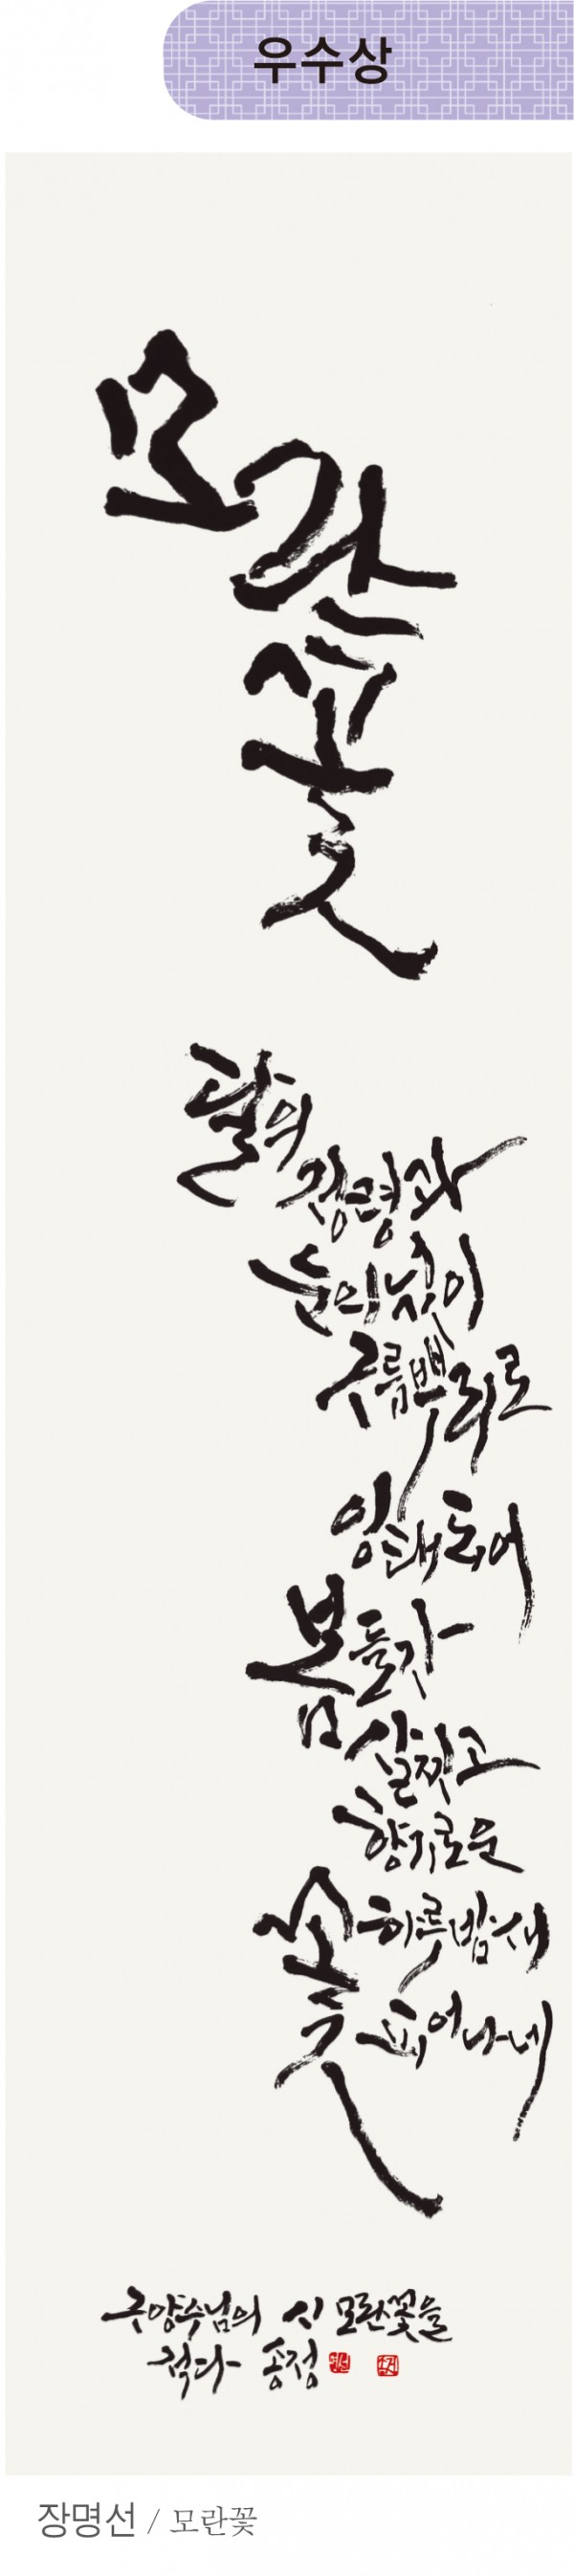 우수상
모란꽃
달의
정령과
눈의 넋이
구름뿌리로
잉태되어
봄 들자
살찌고
향기로운
꽃 하루밤새
피어나네
구양수님의 시 모란꽃을
적다 송정
장명선 / 모란꽃